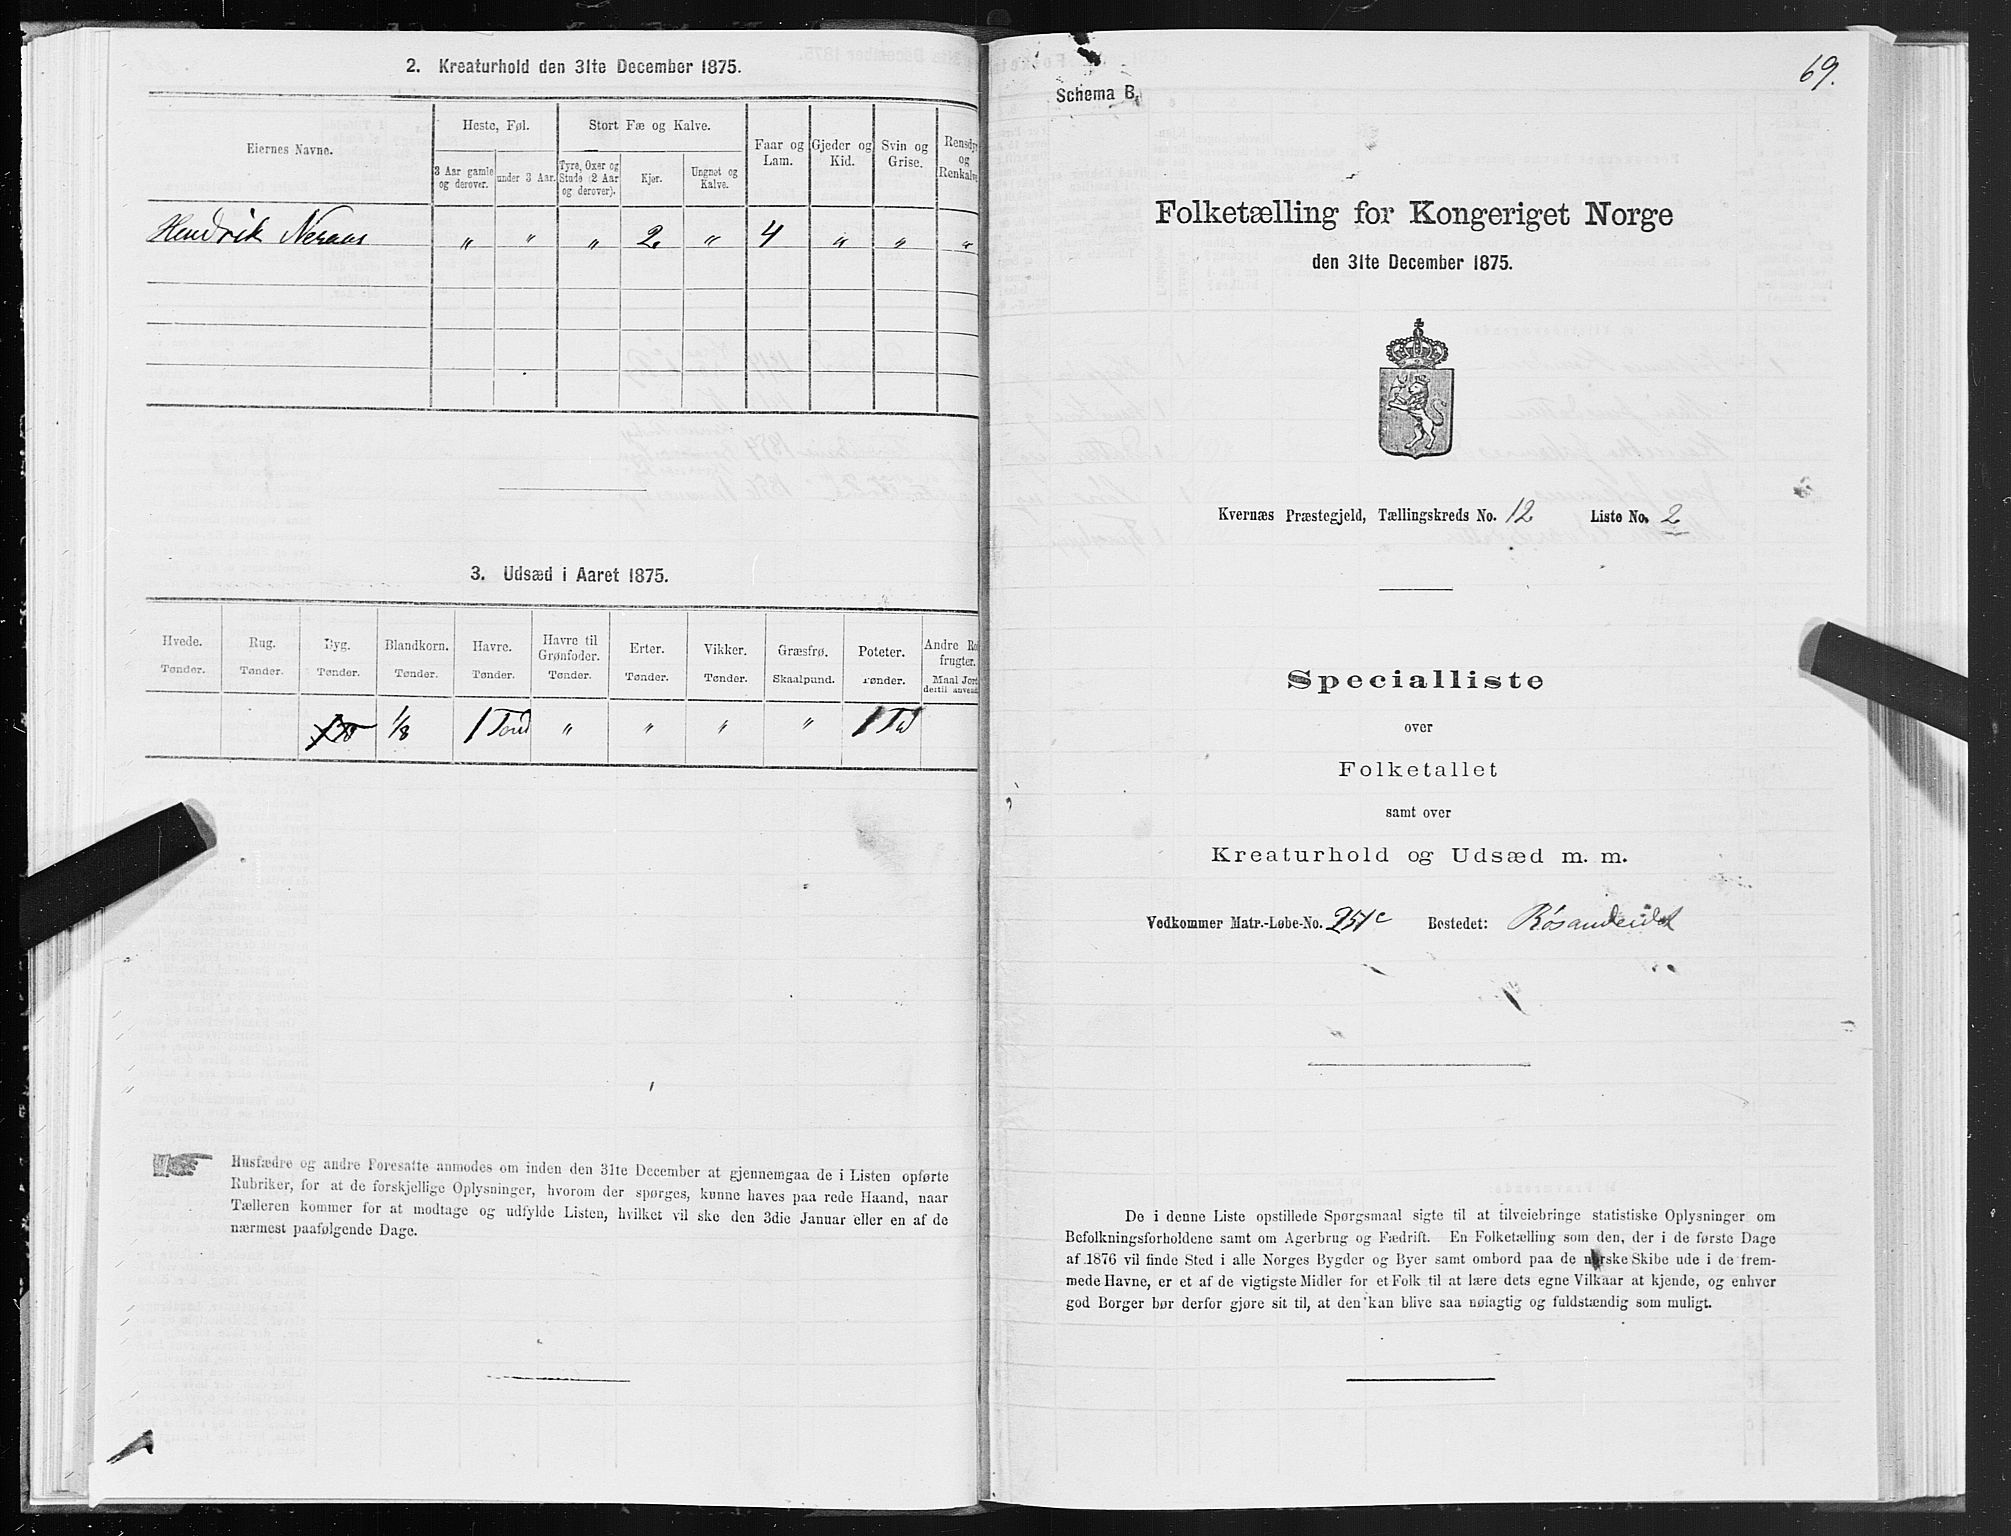 2. Kreaturhold den 31te December 1875.
Eiernes Navne.
Heste, Føl.
Stort Fæ og Kalve.
Faar og Lam.
Gjeder og Kid.
Svin og Grise.
Rensdyr og Renkalve
3 Aar gamle og derover.
under 3 Aar.
Tyre, Oxer og Stude (2 Aar og derover).
Kjør.
Ungnøt og Kalve.
Hendrik Neraas " " " 2 " 4 " " "
3. Udsæd i Aaret 1875.
Hvede. Rug. Byg. Blandkorn. Havre. Havre til Grønfoder. Erter. Vikker. Græsfrø. Poteter. Andre Ro frugter.
Tønder. Tønder. Tønder. Tønder. Tønder. Tønder. Tønder. Tønder. Skaalpund. Tønder. Maal Jord dertil anvend
1/8 1 Tond " " " " 1 Td
Husfædre og andre Foresatte anmodes om inden den 31te December at gjennemgaa de i Listen opførte
Rubriker, for at de forskjellige Oplysninger, hvorom der spørges, kunne haves paa rede Haand, naar
Tælleren kommer for at modtage og udfylde Listen, hvilket vil ske den 3die Januar eller en af de
nærmest paafølgende Dage.
69.
Schema B.
Folketælling for Kongeriget Norge
den 31te December 1875.
Kvernæs Præstegjeld, Tællingskreds No. 12 Liste No. 2
Specialliste
over
Folketallet
samt over
Kreaturhold og Udsæd m. m.
Vedkommer Matr.-Løbe-No. 251c Bostedet: Røsandeidet
De i denne Liste opstillede Spørgsmaal sigte til at tilveiebringe statistiske Oplysninger om
Befolkningsforholdene samt om Agerbrug og Fædrift. En Folketælling som den, der i de første Dage
af 1876 vil finde Sted i alle Norges Bygder og Byer samt ombord paa de norske Skibe ude i de frem-
mede Havne, er et af de vigtigste Midler for et Folk til at lære dets egne Vilkaar at kjende, og enhver
god Borger bør derfor gjøre sit til, at den kan blive saa nøiagtig og fuldstændig som muligt.